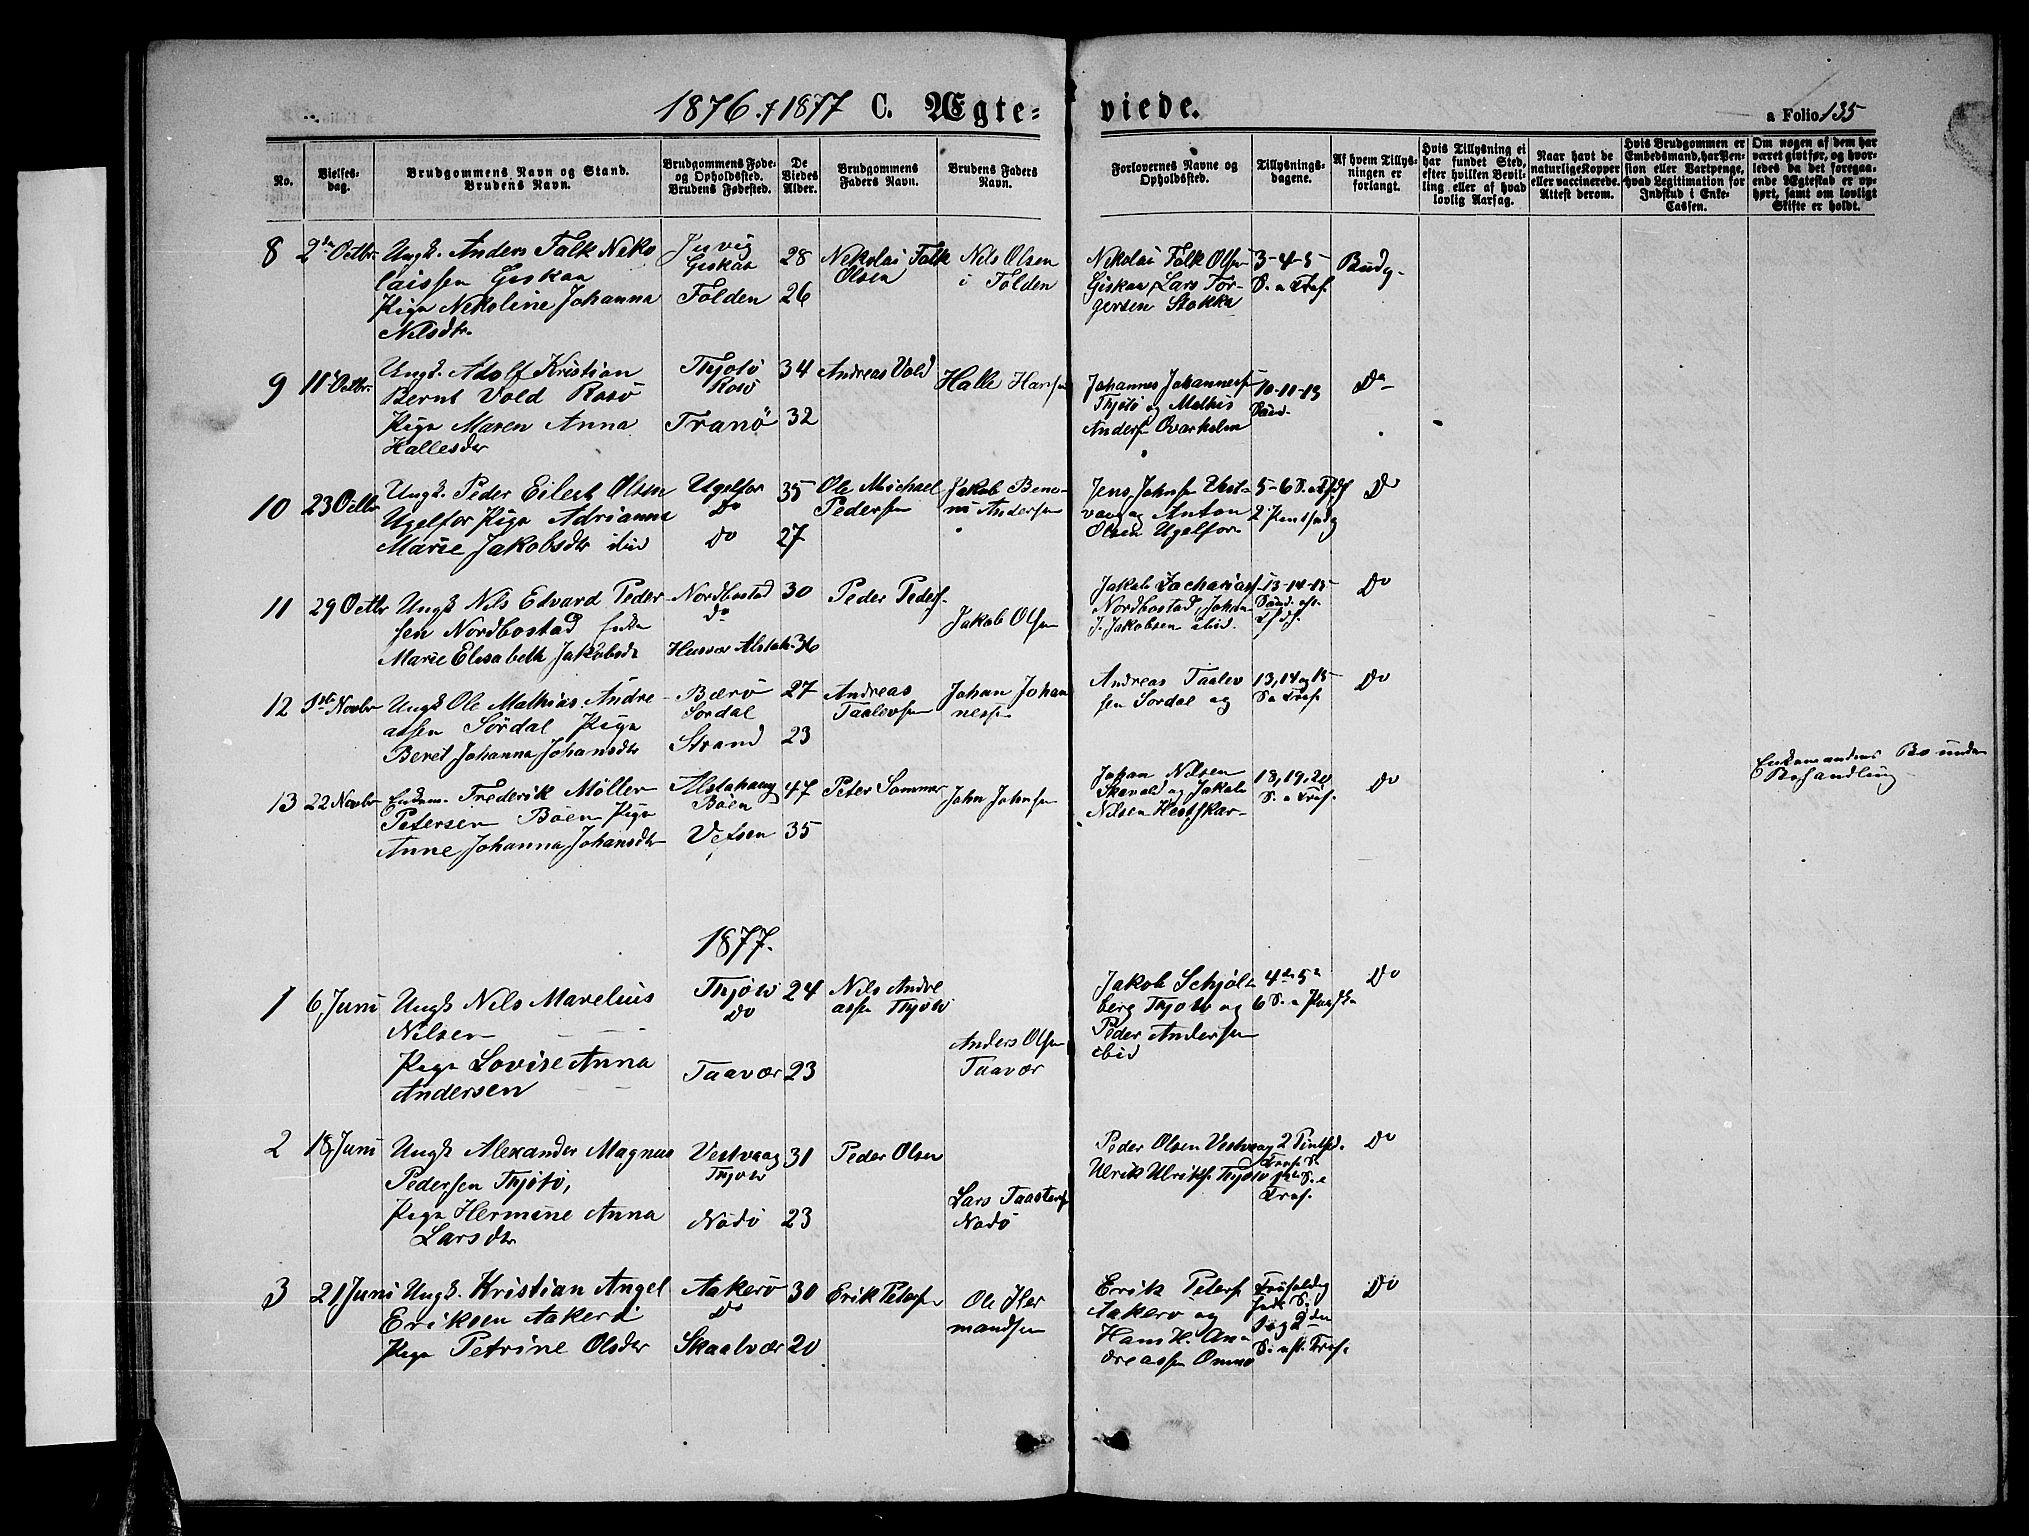 1876 & 1877 C. Ægte-viede. a Folio 135
No.
Vielses-dag.
Brudgommens Navn og Stand. Brudens Navn.
Brudgommens Føde- og Opholdssted. Brudens Fødested.
De Viedes Alder.
Brudgommens Faders Navn.
Brudens Faders Navn.
Forlovernes Navne og Opholdssted.
Tillysnings-dagene.
Af hvem Tillysningen er forlangt.
Hvis Tillysning ei har fundet Sted, efter hvilken Bevilling eller af hvad lovlig Aarsag.
Naar havt de naturlige Kopper eller vaccinerede. Attest derom.
Hvis Brudgommen er Embedsmand, har Pension eller Vartpenge, hvad Legitimation for Indskud i Enke-Cassen.
Om nogen af dem har været gift før, og hvorledes da det foregaaende Ægteskab er ophørt, samt om lovligt Skifte er holdt.
8 2den Octbr. Ungk. Anders Falk Niko
laissen Giskaa
Pige Nekoline Johanna
Nilsdtr.
Giskaa
Folden
28
26
Nekolai Falk
Olsen
Nils Olsen
i Folden
Nikolai Falk Olsen
Giskaa, Lars Tor-
gersen Stokka
3-4-5-
S. a Tref.
Budg-
9 11te Octbr. Ungk. Adolf Kristian
Bernt Vold Rosø
Pige Maren Anna
Hallesdtr
Thjøtø
Rosø
Tranö
34
32
Andreas Vold
Halle Hansen
Johannes Johannesf
Thjøtø og Mathis
Andersf Ovarholm
10-11-13
Sönd.
Do
10 23 Octbr Ungk. Peder Eilert Olsen
Ugelfor Pige Adrianna
Marie Jakobsdtr ibid
Ugelfor
Do
Do
35
27
Ole Michael
Pedersen
Jakob Beno-
ni Andersen
Jens Johnsen Vest-
vaag og Anton
Olsen Ugelfor
Do
11 29 Octbr Ungk Nils Edvard Peder
sen Nordbostad Enke
Marie Elisabeth Jakobsdr
Nordbostad
do
Husvær Alstah.
30
36
Peder Peders.
Jakob Olsen
Jakob Zachariasf
Nordbostad, Johan
J. Jakobsen ibid.
13-14-15
Sönd. eft.
Do
12 1ste Novbr Ungk Ole Mathias Andre
assen Sördal Pige
Beret Johanna Johansdtr
Bærø
Sørdal
Strand
27
23
Andreas
Taalevsen
Johan Johan
nessen
Andreas Taalev
sen Sørdal og
13, 14 og 15
S. a Tref.
Do
13 22 Novbr Enkem. Frederik Møller
Petersen Böen Pige
Anne Johanna Johansdtr
Alstahaug
Böen
Vefsen
47
35
Peter Sommer
John Johnsen
Johan Nilsen
Skevold og Jakob
Nilsen Hestskar-
18, 19, 20
S. a Tref.
Do
Enkemandens Bo under
Behandling
1877.
1 6 Juni Ungk Nils Marelius
Nilsen
Pige Lovise Anna
Andersen
Thjøtø
Do
Taavær
24
23
Nils Andre
assen Thjøtø
Anders Olsen
Taavær
Jakob Schjøls-
berg Thjøtø og
Peder Andersen
ibid
4de 5te
6 S. a Paaske
Do
2 18 Juni Ungk Alexander Magnus
Pedersen Thjøtø,
Pige Hermine Anna
Larsdtr
Vestvaag
Thjøtø
Nodø
31
23
Peder Olsen
Lars
Nodø
Peder Olsen Vestvaag
Ulrik Ulriks. Thjøtø
2 Pintsd.
Tref. S.
Tref.
Do
3 21 Juni Ungk. Kristian Angel
Eriksen Aakerö
Pige Petrine Olsdtr
Aakerø
Do
Skaalvær
30
20
Erik Petersen
Ole Her
mandsen
Erik Petersf
Aakerø og
Hans H. An-
dreassen Omnø
Trefoldig
S. eft. Tref.
Do